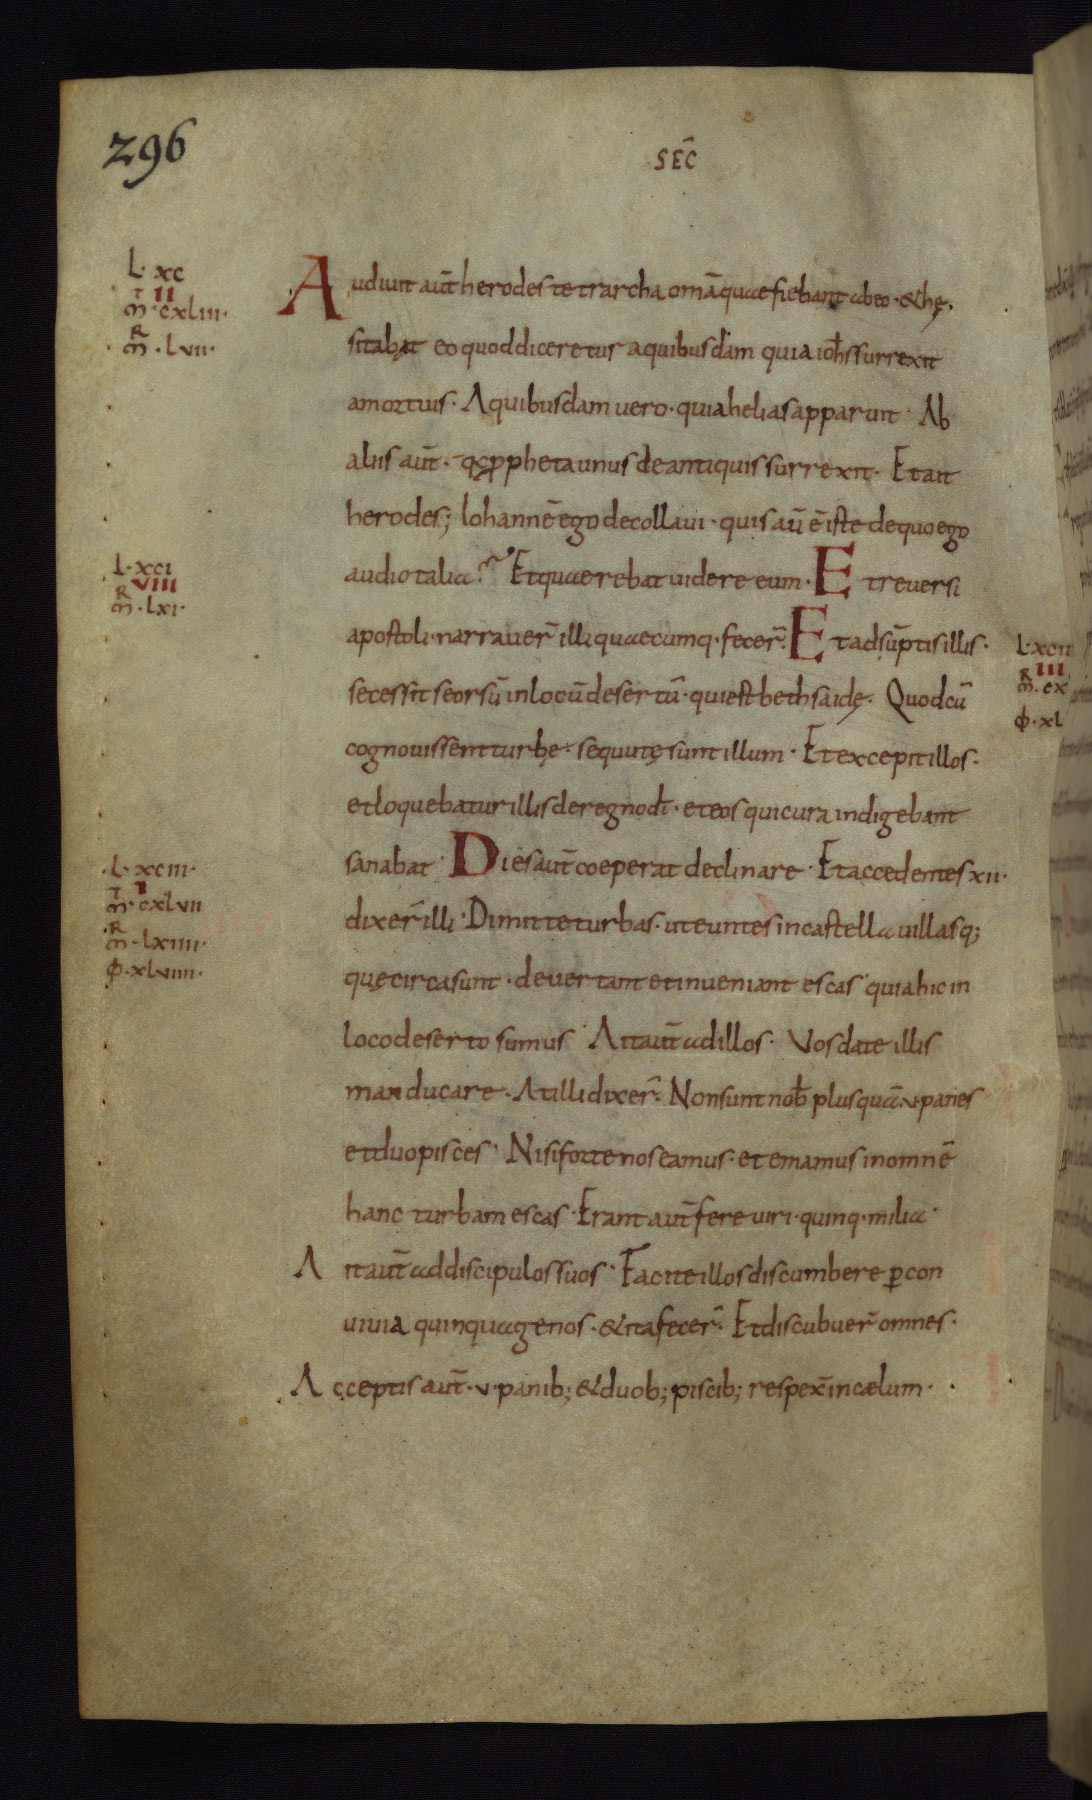 296
SEC̄
L. xc
II
m̅T. cxLIII.
m̅R. Lvii.
Audiuit aut̄ herodes tetrarcha omā quae fiebant ab eo. & hę.
sitabat eo quod diceretur a quibusdam quia ioh̄s surrexit
amortuis. A quibusdam uero. quia helias apparuit. Ab
aliis aut̄. propheta unus de antiquis surrexit. Et ait
herodes; Iohannē ego decollaui. quis aut̄ ē iste de quo ego
audio talia? Et quaerebat uidere eum. Et reuersi
L. xci
VIII
m̅R. Lxi.
apostoli. narrauer̄ illi quaecumq. fecer̄. Et adsūptis illis.
L. xcii
III
m̅R. cx
φ. xL
secessit seorsū in locū desertū. qui est bethsaidę. Quod cū
cognouissent turbę. sequutę sunt illum. Et excepit illos.
et loquebatur illis de regno dī. et eos qui cura indigebant
sanabat. Dies aut̄ coeperat declinare. Et accedentes xii.
L. xciii.
I
m̅T. cxLvii
m̅R. Lxiiii.
φ. xLviiii.
dixer̄ illi. Dimitte turbas. ut euntes in castella uillasq;
quę circa sunt. deuertant et inueniant escas. quia hic in
loco deserto sumus. Ait aut̄ ad illos. Vos date illis
manducare. At illi dixer̄. Non sunt nob̄ plus quā .v. panes
et duo pisces. Nisi forte nos eamus. et emamus in omnē
hanc turbam escas. Erant aut̄ fere uiri. quinq. milia.
Ait aut̄ ad discipulos suos. Facite illos discumbere p̱ con
uiuia quinquagenos. & ita fecer̄. Et discubuer̄ omnes.
Acceptis aut̄. v. panib; & duob; piscib; respex̄ in cælum.